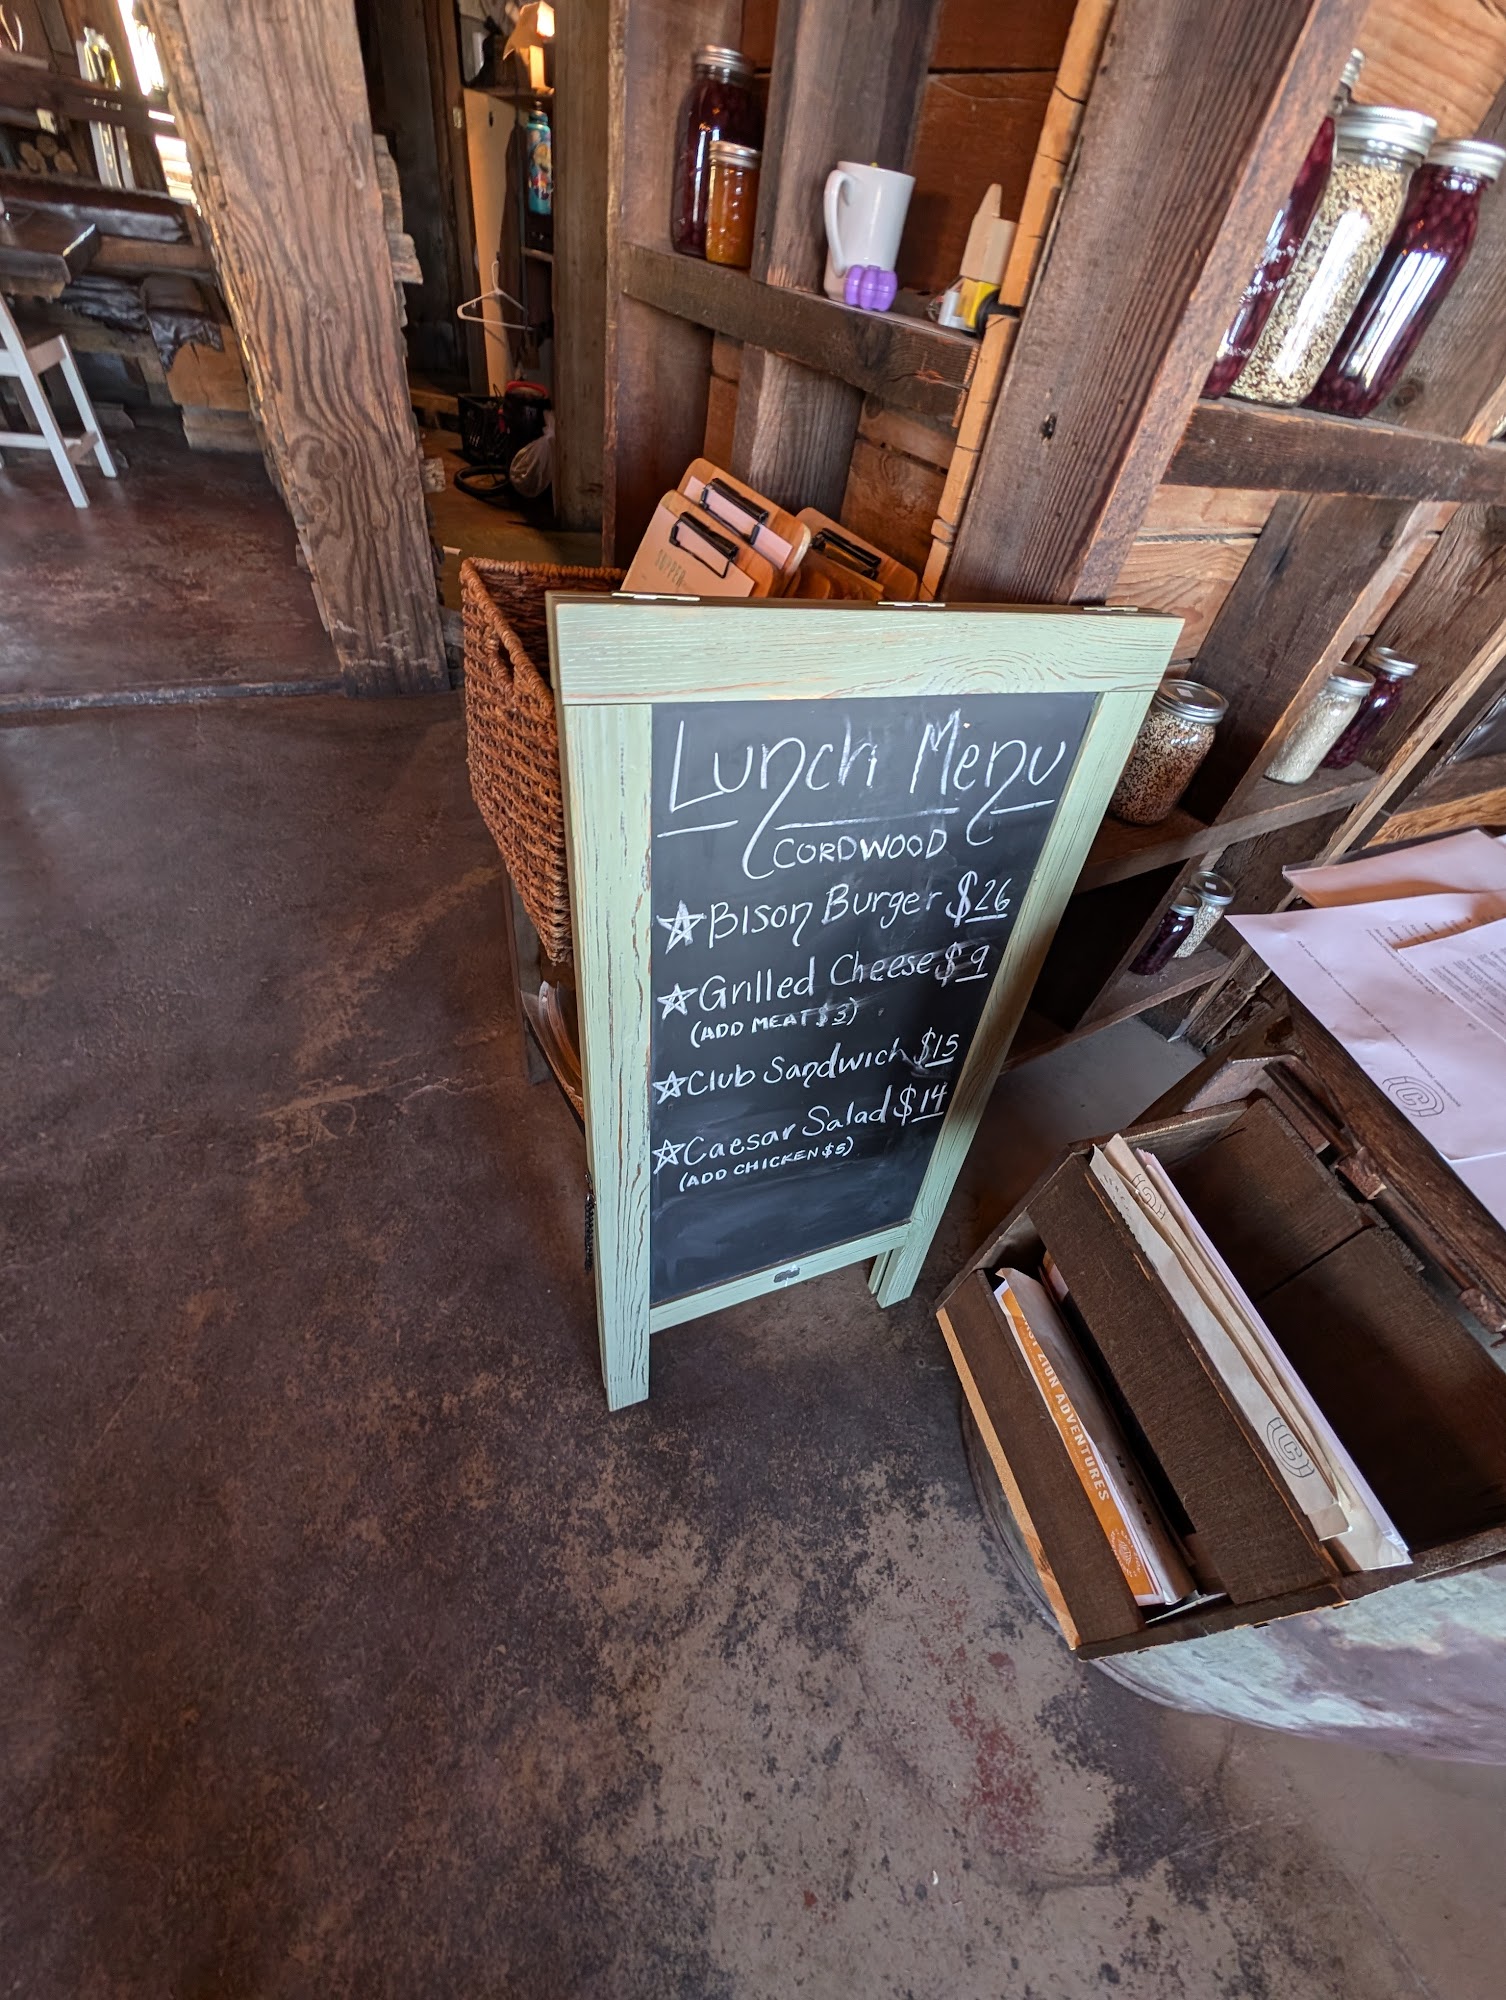 SUPPER
Lunch Menu
CORDWOOD
Bison Burger $26
Grilled Cheese $9
(ADD MEAT $3)
Club Sandwich $15
Caesar Salad $14
(ADD CHICKEN $5)
ZION ADVENTURES